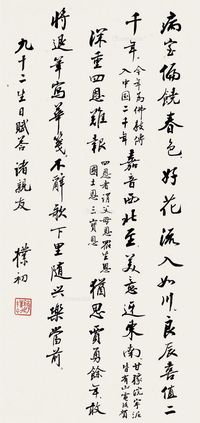 病室偏饒春色好花流入如川良辰喜值二
千年今年為佛教傳入中國二千年嘉音西北至美意東南
深重四恩難報四恩者謂父母恩眾生恩國土恩三寶恩猶思賈勇餘年敢
將退筆寫華箋不辭歌下里隨興樂當前
九十二生日賦答諸親友
樸初